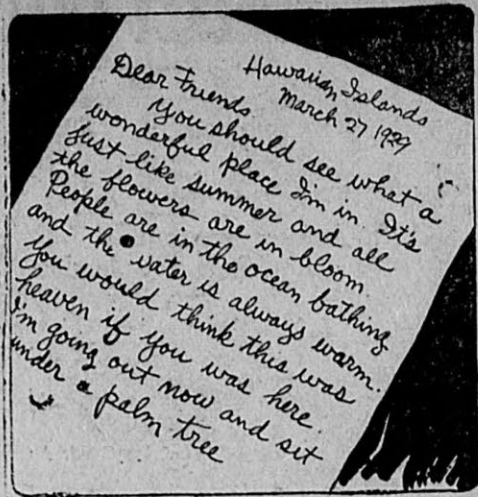 Hawaiian Islands
March 27 1929
Dear Friends.
You should see what a
wonderful place I'm in. It's
just like summer and all
the flowers are in bloom.
People are in the ocean bathing
and the water is always warm.
You would think this was
heaven if you was here.
I'm going out now and sit
under a palm tree